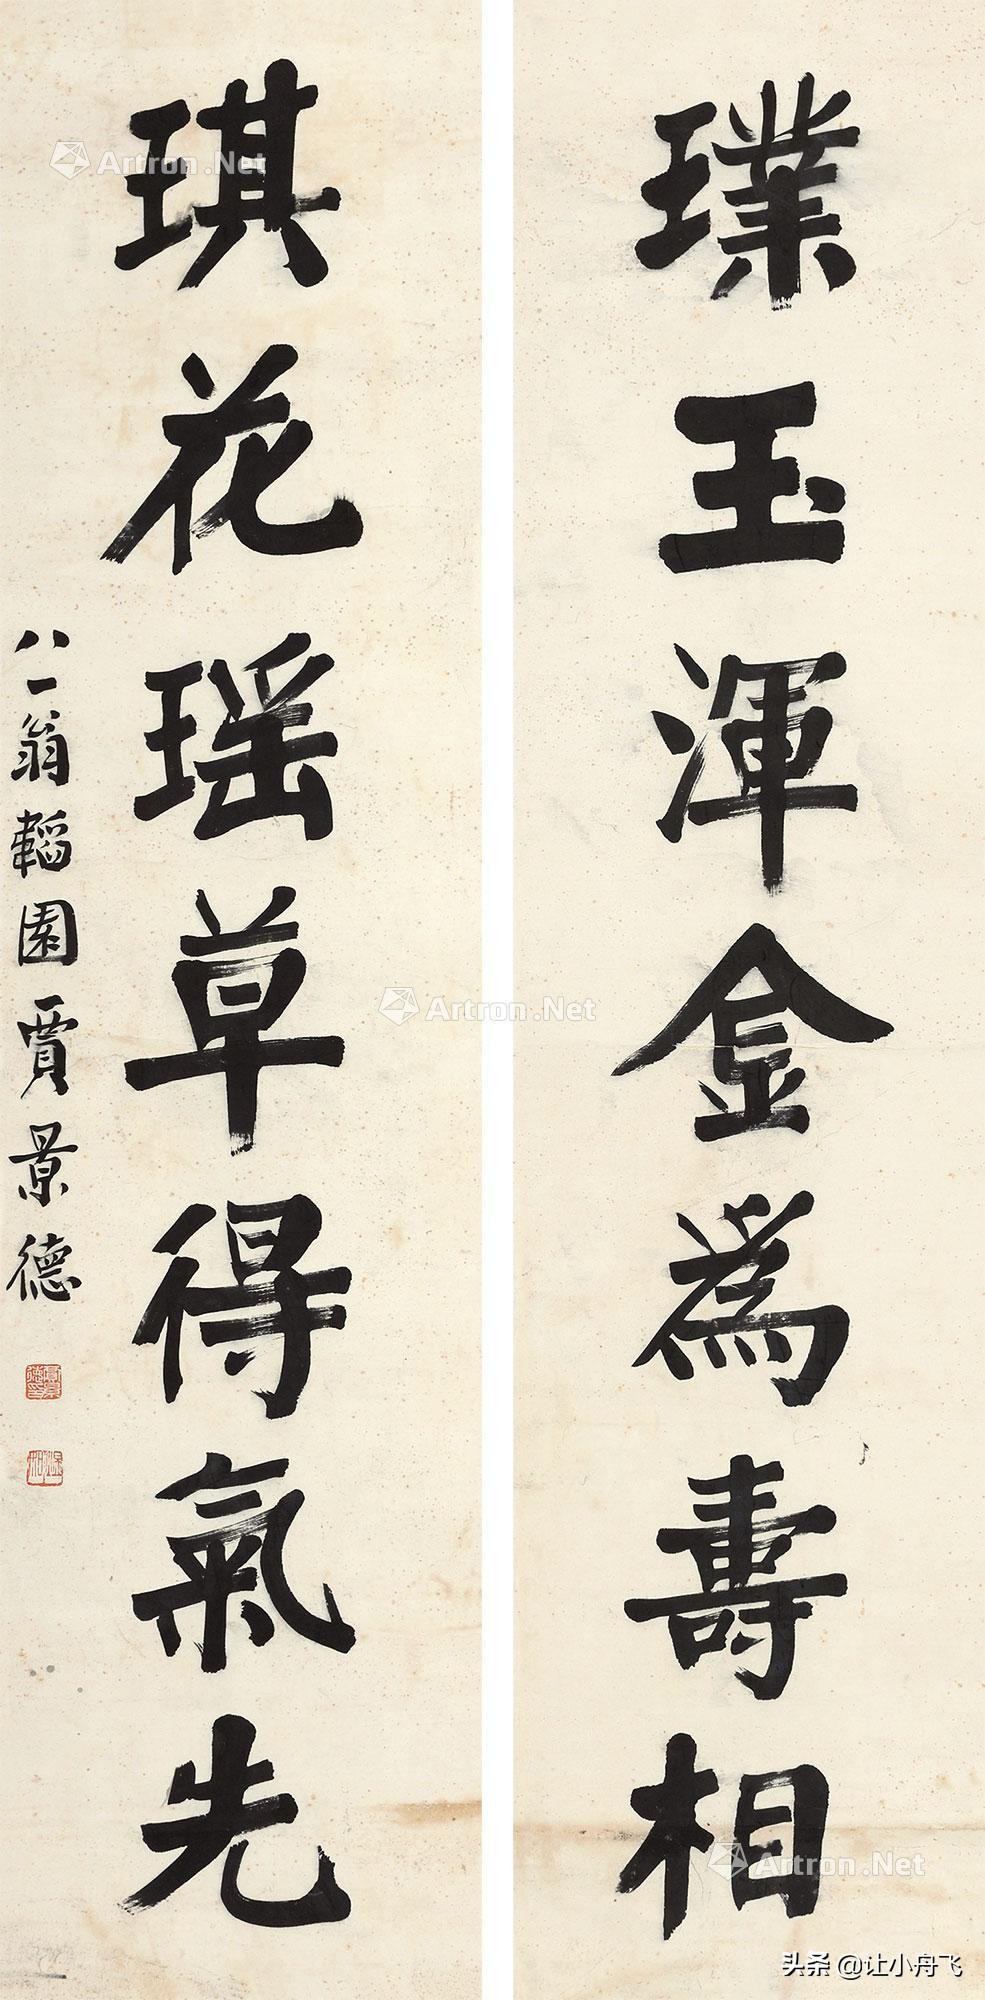 璞玉渾金為壽相
琪花瑶草得氣先
八一翁韜園賈景德
Artron.Net
Artron.Net
Artron.Net
头条 @让小舟飞